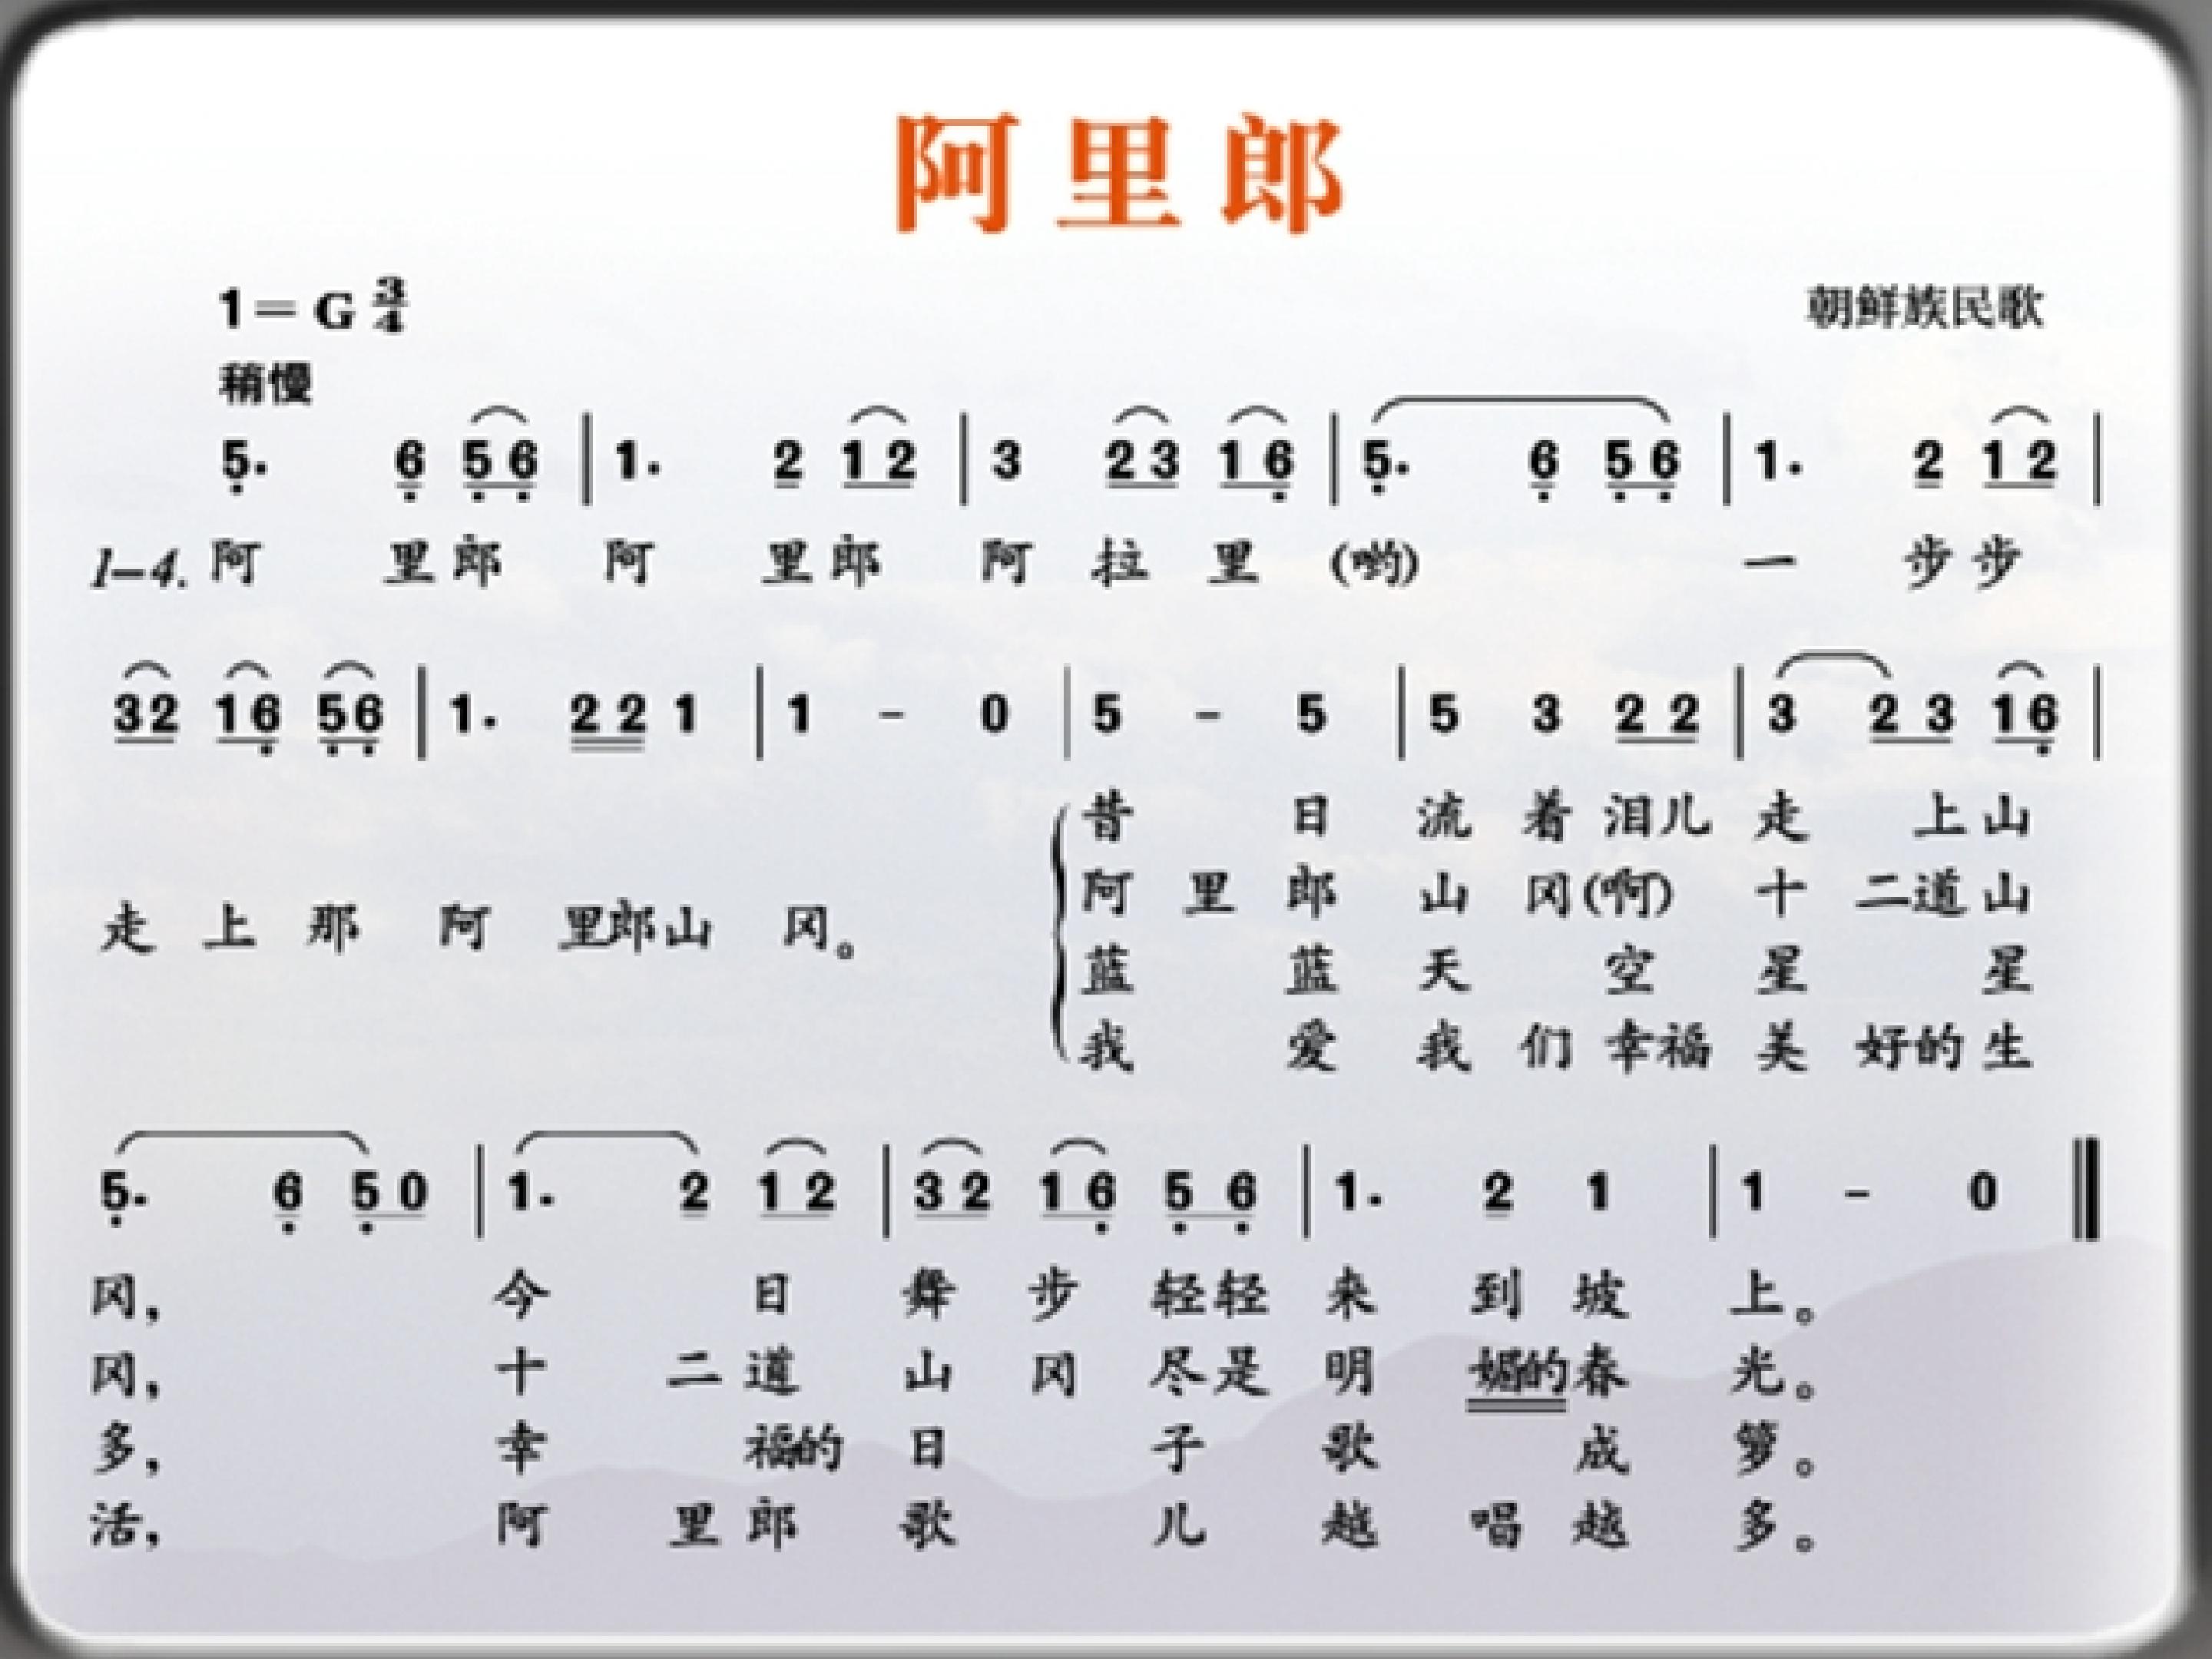 阿里郎
1=G 3/4
朝鲜族民歌
稍慢
5. 6 5 6 | 1. 2 1 2 | 3 2 3 1 6 | 5. 6 5 6 | 1. 2 1 2 |
1-4. 阿 里 郎 阿 里 郎 阿 拉 里 (哟) 一 步 步
3 2 1 6 5 6 | 1. 2 2 1 | 1 - 0 | 5 - 5 | 5 3 2 2 | 3 2 3 1 6 |
昔 日 流 着 泪儿 走 上 山
阿 里 郎 山 冈(啊) 十 二道 山
走 上 那 阿 里郎山 冈。
蓝 蓝 天 空 星 星
我 爱 我 们 幸福 美 好的 生
5. 6 5 0 | 1. 2 1 2 | 3 2 1 6 5 6 | 1. 2 1 | 1 - 0
冈, 今 日 舞 步 轻轻 来 到 坡 上。
冈, 十 二 道 山 冈 尽是 明 媚的春 光。
多, 幸 福的 日 子 歌 成 箩。
活, 阿 里 郎 歌 儿 越 唱 越 多。